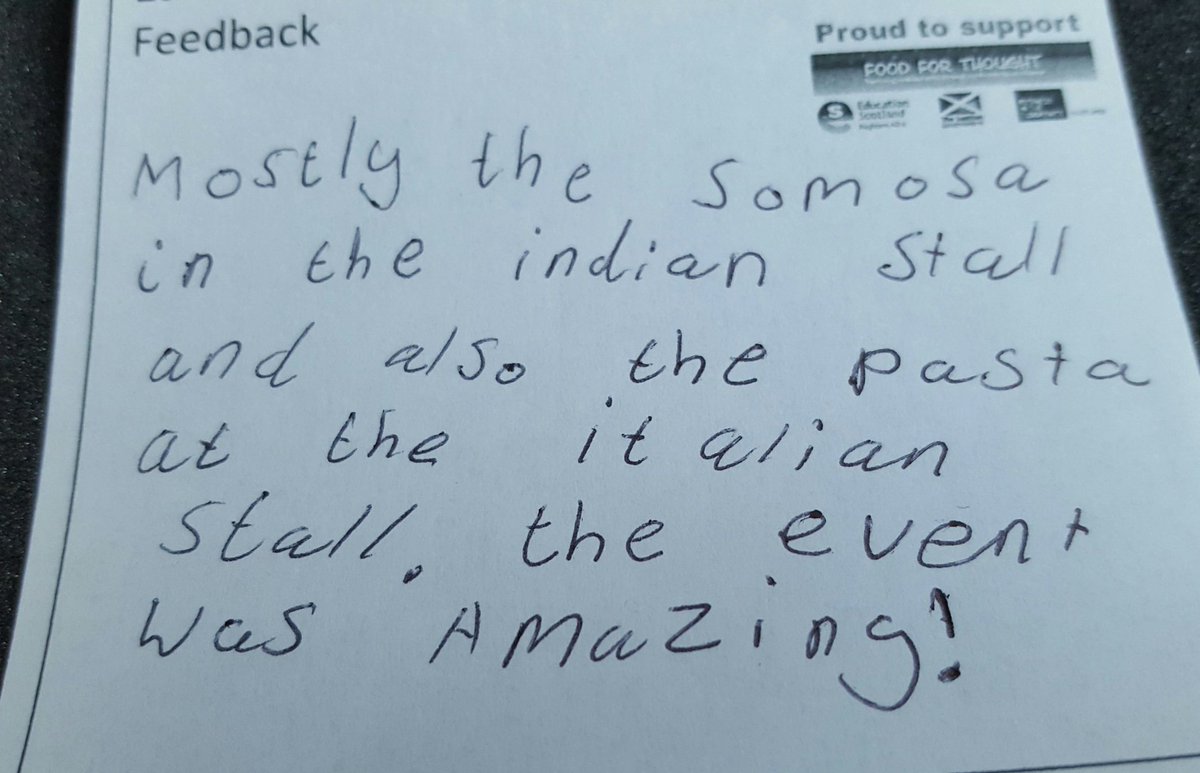 Feedback
Proud to support
FOOD FOR THOUGHT
Education
Scotland
Mostly the Somosa
in the indian Stall
and also the pasta
at the italian
Stall. the event
was Amazing!